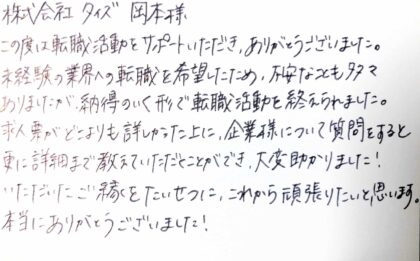 株式会社タイズ 岡本様
この度は転職活動をサポートいただき、ありがとうございました。
未経験の業界への転職を希望したため、不安なことも多々
ありましたが、納得のいく形で転職活動を終えられました。
求人票がどこよりも詳しかった上に、企業様について質問をすると
更に詳細まで教えていただくことができ、大変助かりました!
いただいたご縁をたいせつに、これから頑張りたいと思います。
本当にありがとうございました!